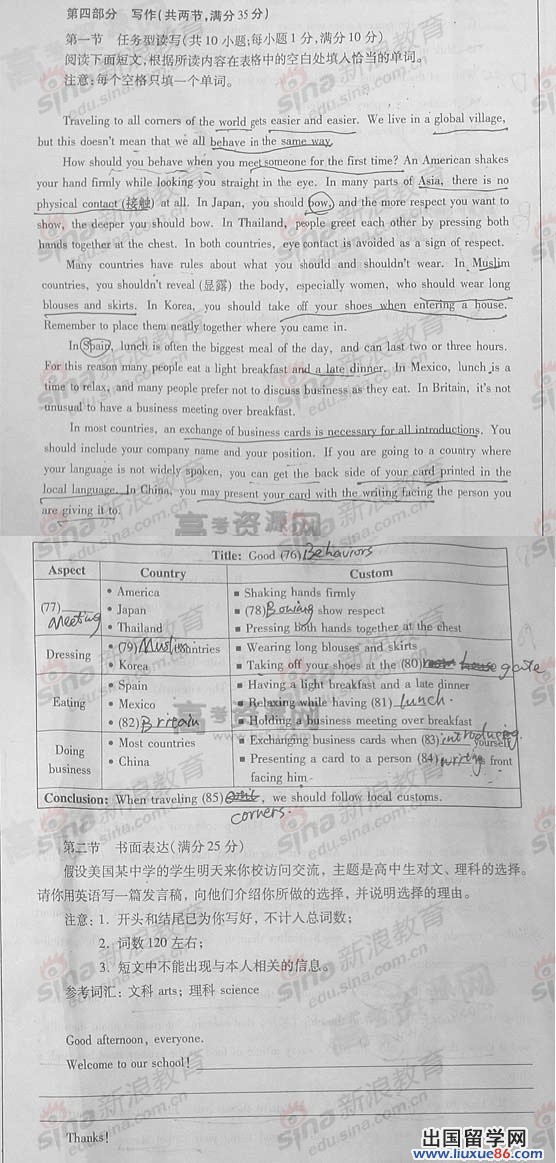 第四部分 写作(共两节,满分35分)
第一节 任务型读写(共10小题;每小题1分,满分10分)
阅读下面短文,根据所读内容在表格中的空白处填入恰当的单词。
注意:每个空格只填一个单词。
Traveling to all corners of the world gets easier and easier. We live in a global village,
but this doesn't mean that we all behave in the same way.
How should you behave when you meet someone for the first time? An American shakes
your hand firmly while looking you straight in the eye. In many parts of Asia, there is no
physical contact (接触) at all. In Japan, you should bow, and the more respect you want to
show, the deeper you should bow. In Thailand, people greet each other by pressing both
hands together at the chest. In both countries, eye contact is avoided as a sign of respect.
Many countries have rules about what you should and shouldn't wear. In Muslim
countries, you shouldn't reveal (显露) the body, especially women, who should wear long
blouses and skirts. In Korea, you should take off your shoes when entering a house.
Remember to place them neatly together where you came in.
In Spain, lunch is often the biggest meal of the day, and can last two or three hours.
For this reason many people eat a light breakfast and a late dinner. In Mexico, lunch is a
time to relax, and many people prefer not to discuss business as they eat. In Britain, it's not
unusual to have a business meeting over breakfast.
In most countries, an exchange of business cards is necessary for all introductions. You
should include your company name and your position. If you are going to a country where
your language is not widely spoken, you can get the back side of your card printed in the
local language. In China, you may present your card with the writing facing the person you
are giving it to.
Title: Good (76) Behaviors
Aspect Country Custom
(77) Meeting
• America ■ Shaking hands firmly
• Japan ■ (78) Bowing show respect
• Thailand ■ Pressing both hands together at the chest
Dressing
• (79) Muslim countries ■ Wearing long blouses and skirts
• Korea ■ Taking off your shoes at the (80) gate
Eating
• Spain ■ Having a light breakfast and a late dinner
• Mexico ■ Relaxing while having (81) lunch.
• (82) Britain ■ Holding a business meeting over breakfast
Doing business
• Most countries ■ Exchanging business cards when (83) introducing yourself
• China ■ Presenting a card to a person (84) writing front
facing him
Conclusion: When traveling (85) corners, we should follow local customs.
第二节 书面表达(满分25分)
假设美国某中学的学生明天来你校访问交流,主题是高中生对文、理科的选择。
请你用英语写一篇发言稿,向他们介绍你所做的选择,并说明选择的理由。
注意:1. 开头和结尾已为你写好,不计入总词数;
2. 词数120左右;
3. 短文中不能出现与本人相关的信息。
参考词汇:文科 arts;理科 science
Good afternoon, everyone.
Welcome to our school!
Thanks!
高考资源网
高考资源网
sina 新浪教育
edu.sina.com.cn
出国留学网
www.liuxue86.com